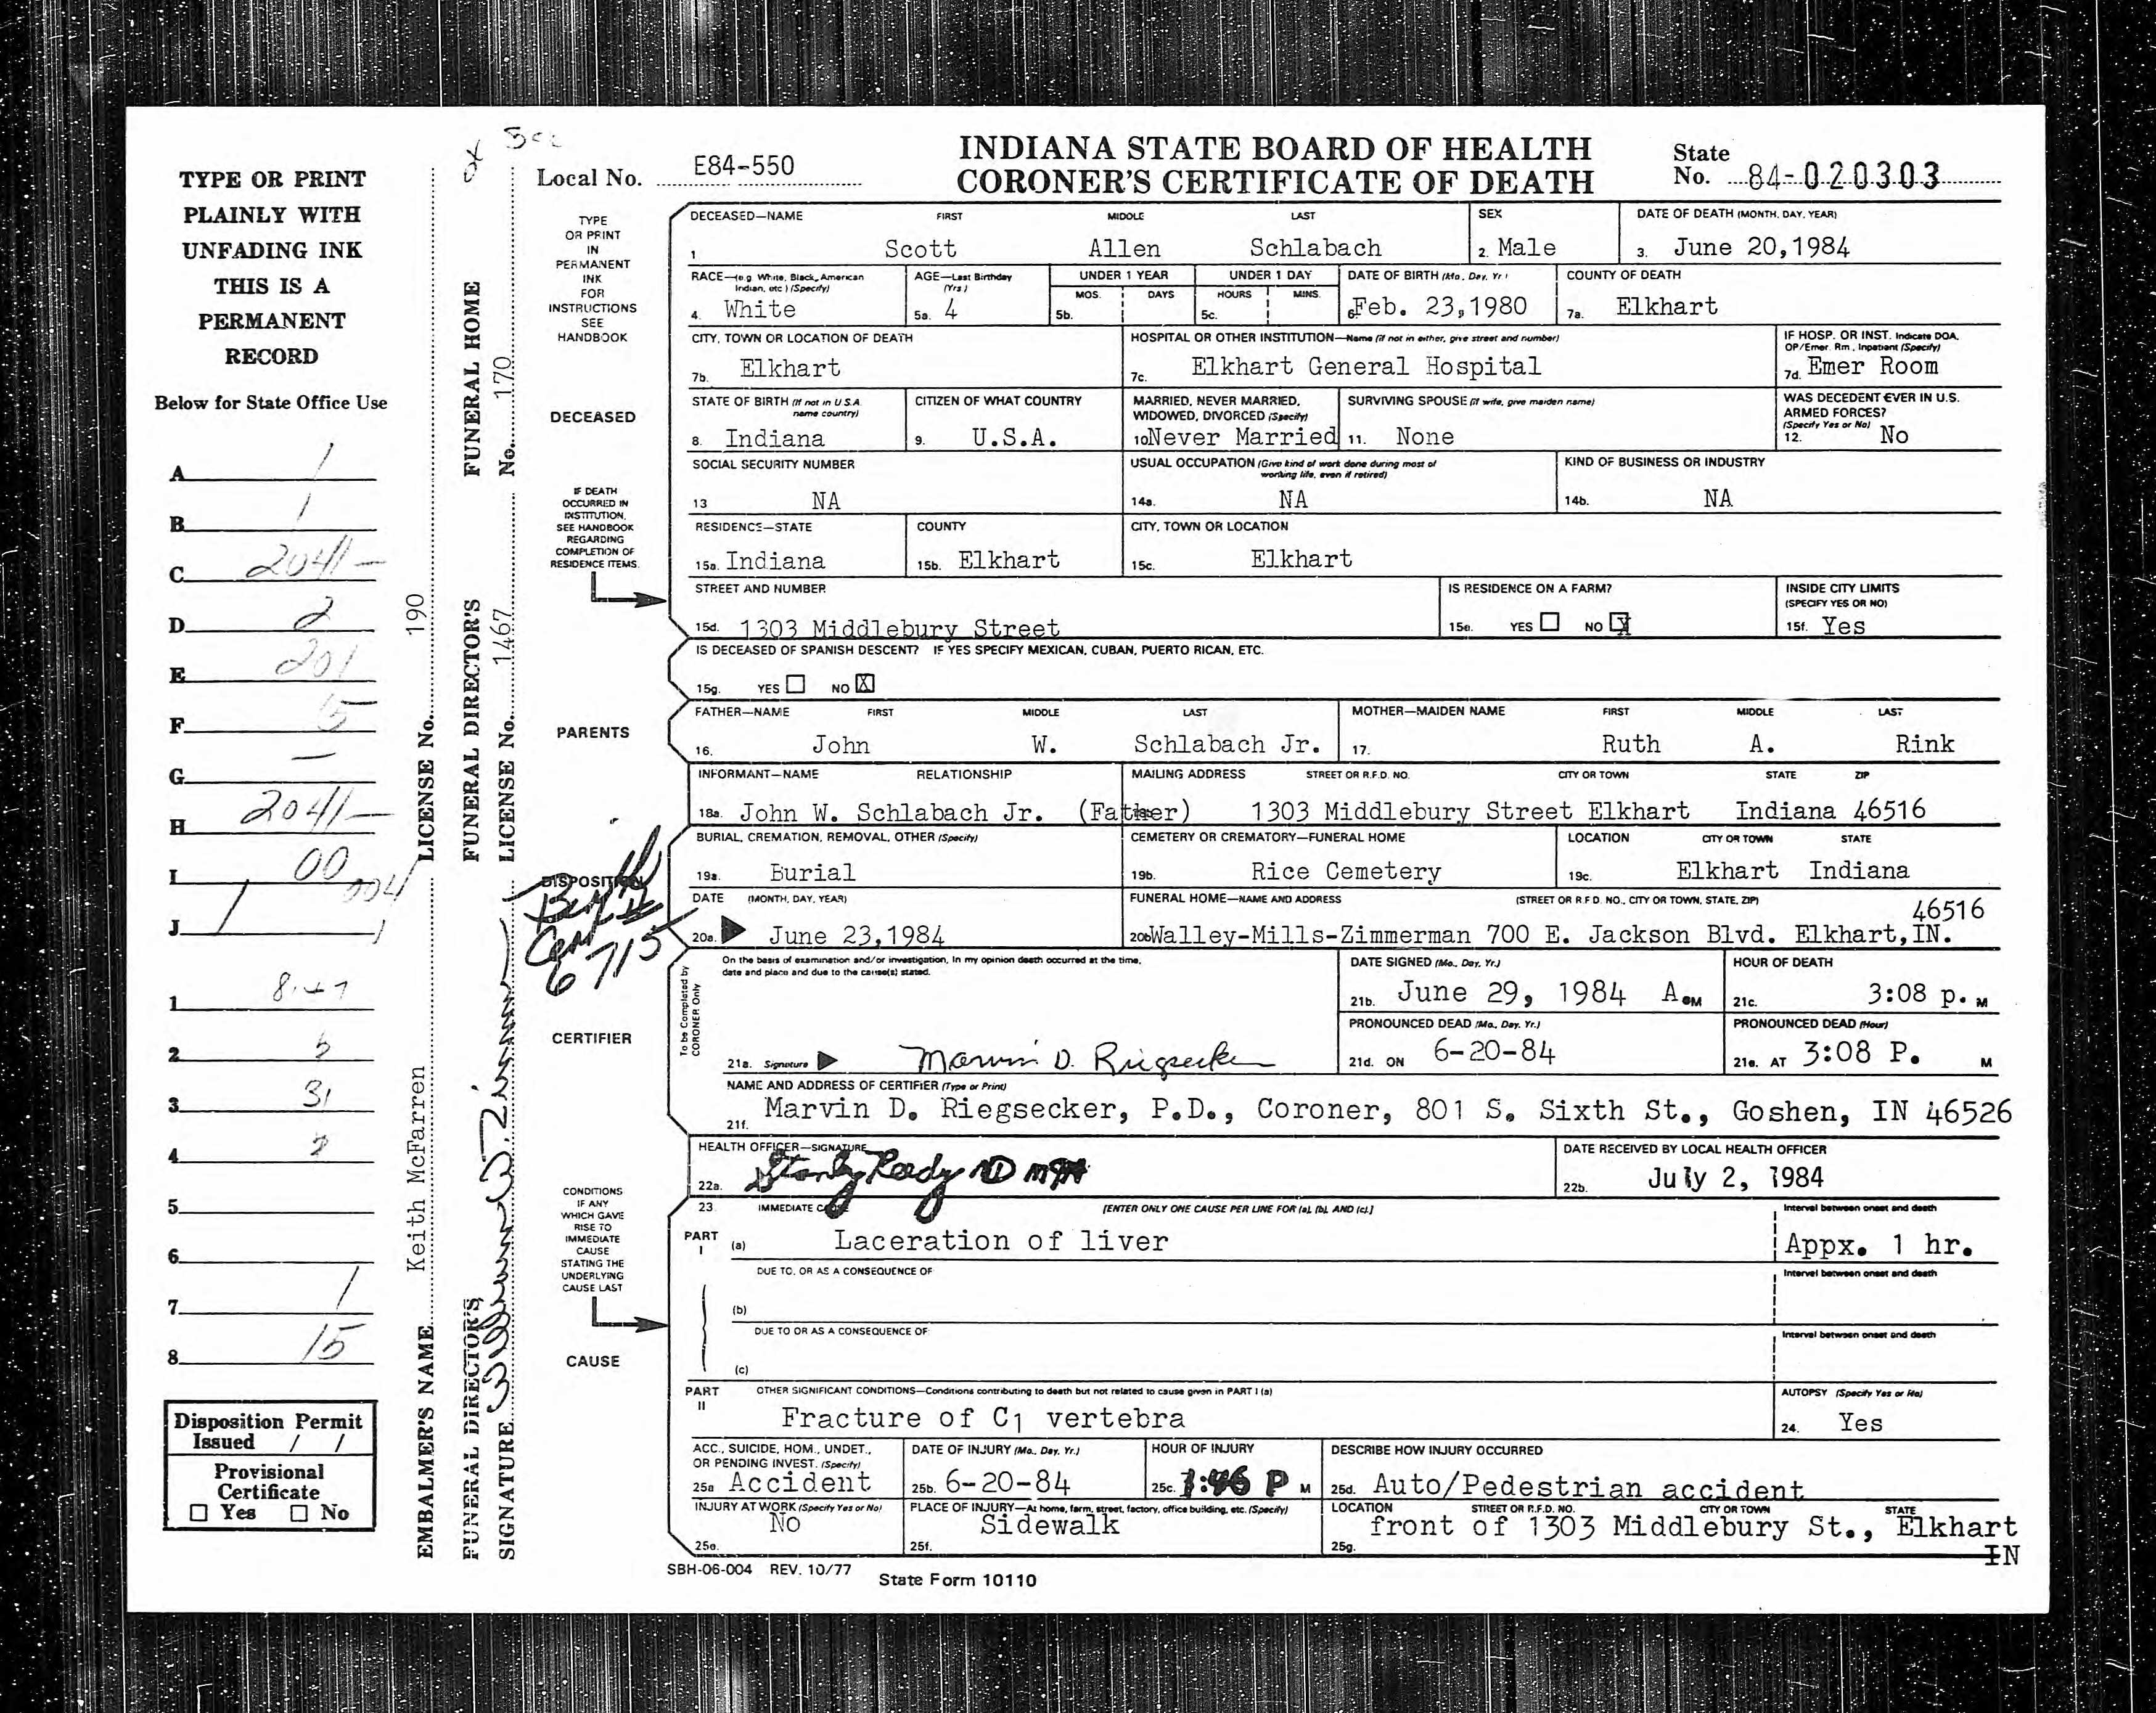 INDIANA STATE BOARD OF HEALTH
CORONER'S CERTIFICATE OF DEATH
Local No. E84-550
State
No. 84-020303
TYPE OR PRINT
PLAINLY WITH
UNFADING INK
THIS IS A
PERMANENT
RECORD
Below for State Office Use
A 1
B 1
C 2041-
D 2
E 201
F 5
G -
H 2041-
I 00
004
J
1
2
3 31
4
5
6
7 1
8 15
Disposition Permit
Issued / /
Provisional
Certificate
☐ Yes ☐ No
EMBALMER'S NAME Keith McFarren LICENSE No. 190
FUNERAL DIRECTOR'S
SIGNATURE
FUNERAL DIRECTOR'S
LICENSE No. 1467
FUNERAL HOME
No. 170
TYPE
OR PRINT
IN
PERMANENT
INK
FOR
INSTRUCTIONS
SEE
HANDBOOK
DECEASED
IF DEATH
OCCURRED IN
INSTITUTION,
SEE HANDBOOK
REGARDING
COMPLETION OF
RESIDENCE ITEMS.
PARENTS
DISPOSITION
6715
CERTIFIER
CONDITIONS
IF ANY
WHICH GAVE
RISE TO
IMMEDIATE
CAUSE
STATING THE
UNDERLYING
CAUSE LAST
CAUSE
DECEASED—NAME FIRST MIDDLE LAST
1 Scott Allen Schlabach
SEX
2. Male
DATE OF DEATH (MONTH, DAY, YEAR)
3. June 20,1984
RACE—(e.g. White, Black, American
Indian, etc.) (Specify)
4. White
AGE—Last Birthday
(Yrs.)
5a. 4
UNDER 1 YEAR
MOS. DAYS
5b.
UNDER 1 DAY
HOURS MINS.
5c.
DATE OF BIRTH (Mo., Day, Yr.)
6. Feb. 23,1980
COUNTY OF DEATH
7a. Elkhart
CITY, TOWN OR LOCATION OF DEATH
7b. Elkhart
HOSPITAL OR OTHER INSTITUTION—Name (If not in either, give street and number)
7c. Elkhart General Hospital
IF HOSP. OR INST. Indicate DOA,
OP/Emer. Rm., Inpatient (Specify)
7d. Emer Room
STATE OF BIRTH (If not in U.S.A.
name country)
8. Indiana
CITIZEN OF WHAT COUNTRY
9. U.S.A.
MARRIED, NEVER MARRIED,
WIDOWED, DIVORCED (Specify)
10 Never Married
SURVIVING SPOUSE (If wife, give maiden name)
11. None
WAS DECEDENT EVER IN U.S.
ARMED FORCES?
(Specify Yes or No)
12. No
SOCIAL SECURITY NUMBER
13 NA
USUAL OCCUPATION (Give kind of work done during most of
working life, even if retired)
14a. NA
KIND OF BUSINESS OR INDUSTRY
14b. NA
RESIDENCE—STATE
15a. Indiana
COUNTY
15b. Elkhart
CITY, TOWN OR LOCATION
15c. Elkhart
STREET AND NUMBER
15d. 1303 Middlebury Street
IS RESIDENCE ON A FARM?
15e. YES ☐ NO ☒
INSIDE CITY LIMITS
(SPECIFY YES OR NO)
15f. Yes
IS DECEASED OF SPANISH DESCENT? IF YES SPECIFY MEXICAN, CUBAN, PUERTO RICAN, ETC.
15g. YES ☐ NO ☒
FATHER—NAME FIRST MIDDLE LAST
16. John W. Schlabach Jr.
MOTHER—MAIDEN NAME FIRST MIDDLE LAST
17. Ruth A. Rink
INFORMANT—NAME RELATIONSHIP
MAILING ADDRESS STREET OR R.F.D. NO. CITY OR TOWN STATE ZIP
18a. John W. Schlabach Jr. (Father) 1303 Middlebury Street Elkhart Indiana 46516
BURIAL, CREMATION, REMOVAL, OTHER (Specify)
19a. Burial
CEMETERY OR CREMATORY—FUNERAL HOME
19b. Rice Cemetery
LOCATION CITY OR TOWN STATE
19c. Elkhart Indiana
DATE (MONTH, DAY, YEAR)
20a. June 23,1984
FUNERAL HOME—NAME AND ADDRESS (STREET OR R.F.D. NO., CITY OR TOWN, STATE, ZIP)
46516
20b Walley-Mills-Zimmerman 700 E. Jackson Blvd. Elkhart,IN.
To be Completed by
CORONER Only
On the basis of examination and/or investigation, in my opinion death occurred at the time,
date and place and due to the cause(s) stated.
21a. Signature Marvin D. Riegsecker
DATE SIGNED (Mo., Day, Yr.)
21b. June 29, 1984 A.M
HOUR OF DEATH
21c. 3:08 p. M
PRONOUNCED DEAD (Mo., Day, Yr.)
21d. ON 6-20-84
PRONOUNCED DEAD (Hour)
21e. AT 3:08 P. M
NAME AND ADDRESS OF CERTIFIER (Type or Print)
21f. Marvin D. Riegsecker, P.D., Coroner, 801 S. Sixth St., Goshen, IN 46526
HEALTH OFFICER—SIGNATURE
22a.
DATE RECEIVED BY LOCAL HEALTH OFFICER
22b. July 2, 1984
23. IMMEDIATE CAUSE [ENTER ONLY ONE CAUSE PER LINE FOR (a), (b), AND (c).]
PART I (a) Laceration of liver
Interval between onset and death
Appx. 1 hr.
DUE TO, OR AS A CONSEQUENCE OF
Interval between onset and death
(b)
DUE TO OR AS A CONSEQUENCE OF
Interval between onset and death
(c)
PART II OTHER SIGNIFICANT CONDITIONS—Conditions contributing to death but not related to cause given in PART I (a)
Fracture of C1 vertebra
AUTOPSY (Specify Yes or No)
24. Yes
ACC., SUICIDE, HOM., UNDET.,
OR PENDING INVEST. (Specify)
25a Accident
DATE OF INJURY (Mo., Day, Yr.)
25b. 6-20-84
HOUR OF INJURY
25c. P M
DESCRIBE HOW INJURY OCCURRED
25d. Auto/Pedestrian accident
INJURY AT WORK (Specify Yes or No)
25e. No
PLACE OF INJURY—At home, farm, street, factory, office building, etc. (Specify)
25f. Sidewalk
LOCATION STREET OR R.F.D. NO. CITY OR TOWN STATE
25g. front of 1303 Middlebury St., Elkhart
IN
SBH-06-004 REV. 10/77
State Form 10110